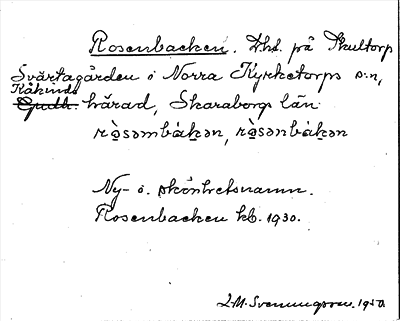 Rosenbacken. Lht. på Skultorp
Svärtagården i Norra Kyrketorps s:n,
Kåkinds
Gudh. härad, Skaraborgs län.
rò̤səmbákən, rò̤sənbákən
Ny- o. skönhetsnamn.
Rosenbacken kb. 1930.
L.M. Svenungsson. 1950